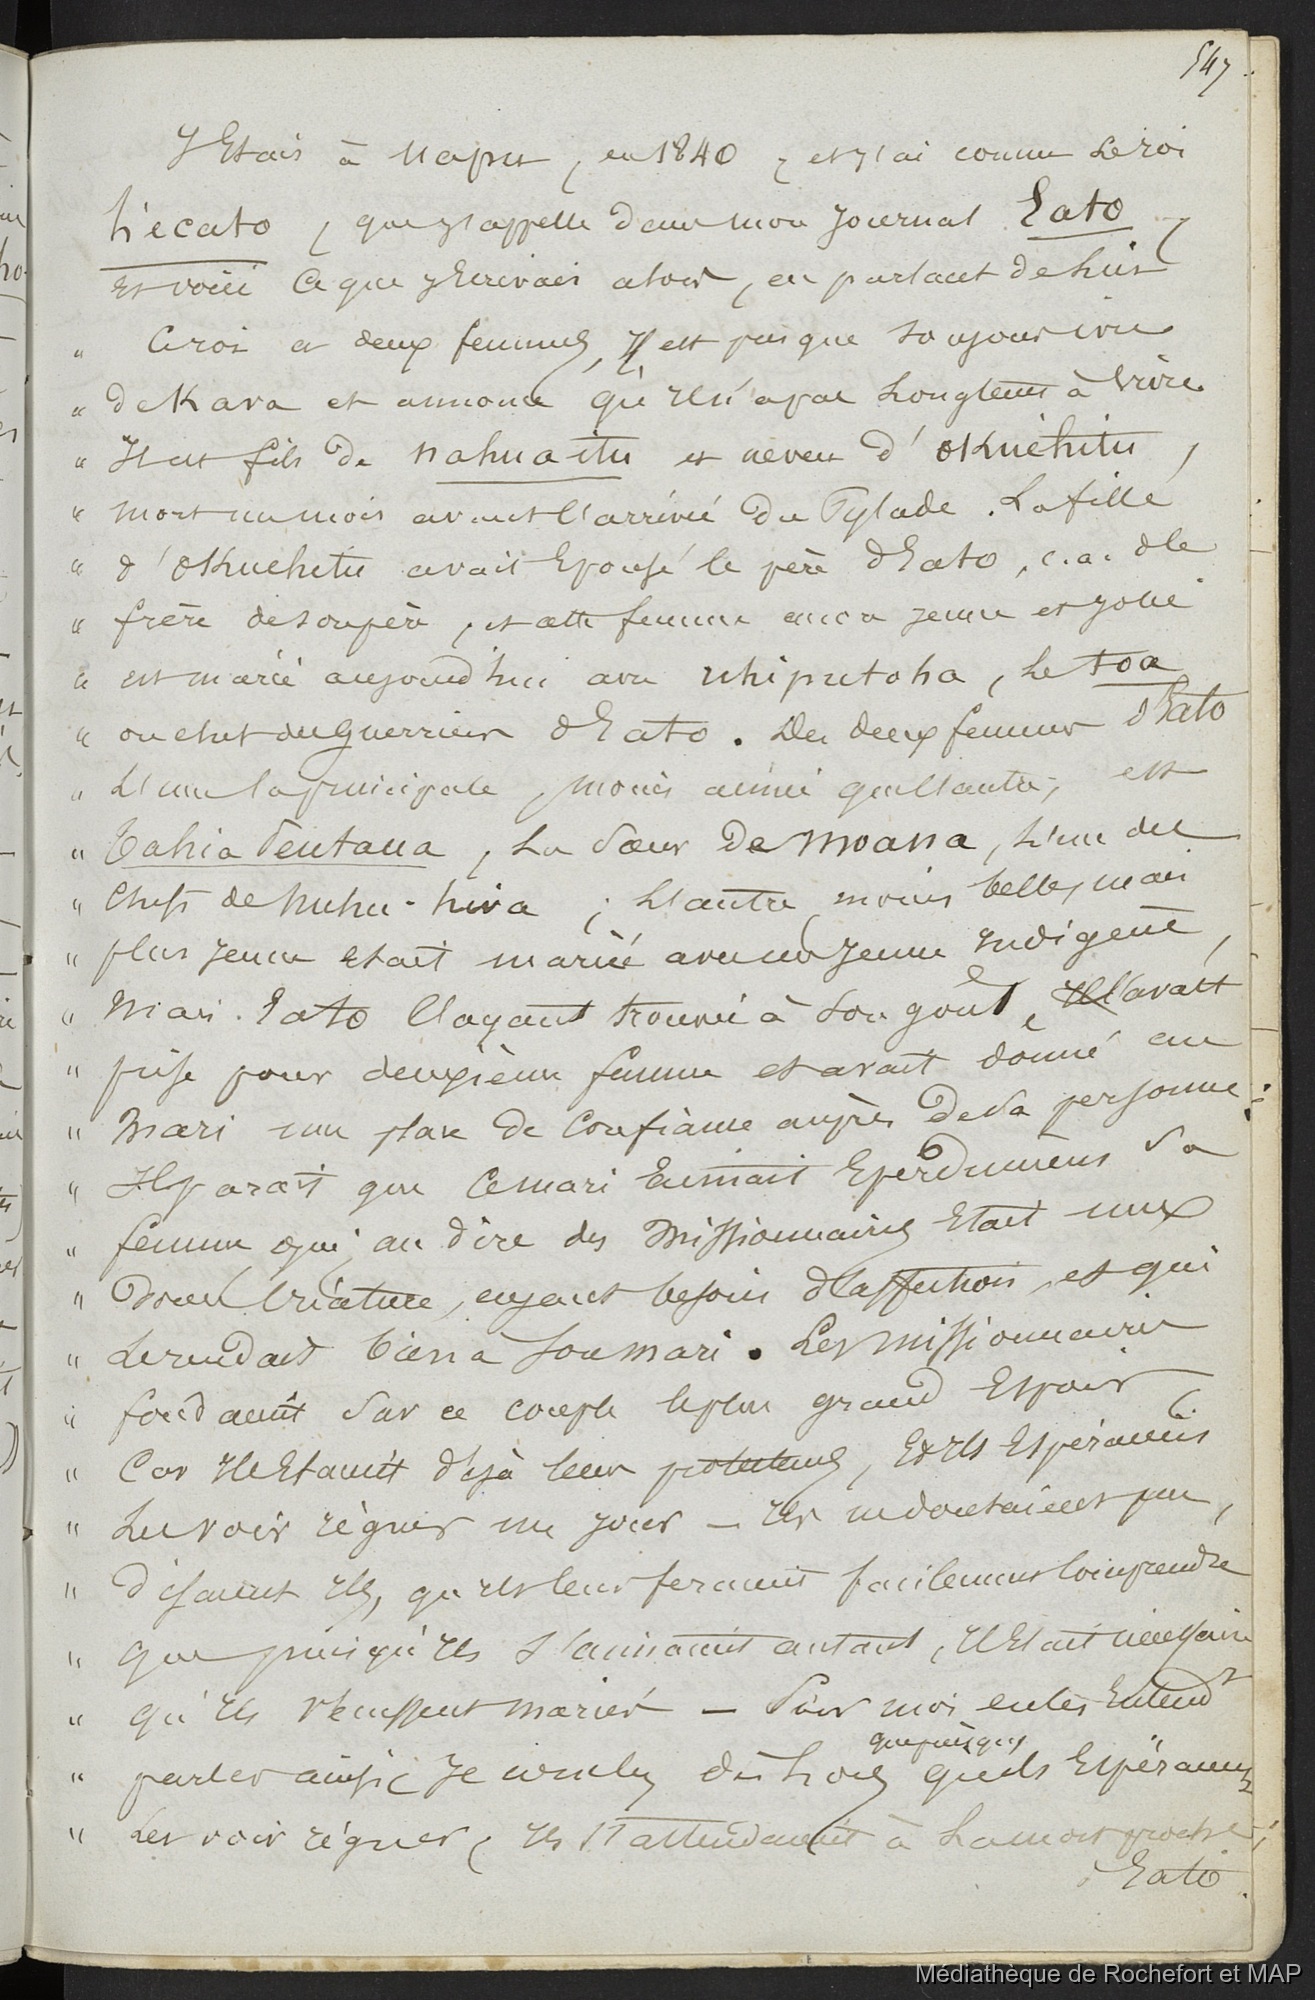 547.
J'Etais à Uapu, en 1840, et j'ai connu le roi
hecato, que j'appelle dans mon journal Eato,
et voici ce que j'Ecrivais alors, en parlant de lui
" Ce roi a deux femmes, Il est presque toujours ivre
" de Kava et annonce qu'il n'a pas longtems à vivre
" Il est fils de nahuaitu et neveu d'oKuehitu,
" mort un mois avant l'arrivée du Pylade. La fille
" d'oKuehitu avait Epousé le père d'Eato, c. a. d le
" frère de son père, et cette femme encore jeune et jolie
" est mariée aujourd'hui avec uhiputoha, le toa
" ou chef des guerriers d'Eato. Des deux femmes d'Eato
" L'une la principale, moins aimée que l'autre, est
" Tahia Pentaua, La Sœur de Moana, l'un des
" chefs de Nuhu-hiva ; L'autre moins belle, mais
" plus jeune etait mariée avec un jeune Indigene,
" Mais Eato l'ayant trouvée à son goût, Il l'avait
" prise pour deuxième femme et avait donné au
" Mari une place de confiance auprès de sa personne
" Il parait que ce mari aimait Eperdument Sa
" femme qui, au dire des Missionnaires Etait une
" douce Créature, ayant besoin d'affection, et qui
" le rendait bien à son mari. Les missionnaires
" fondaient sur ce couple le plus grand Espoir,
" Car Ils Etaient déjà leurs protecteurs, Et Ils Espéraient
" Les voir règner un jour — Ils ne doutaient pas,
" disaient Ils, qu'ils leur feraient facilement comprendre
" que puisqu'Ils s'aimaient autant, Il Etait nécessaire
" qu'Ils fussent mariés — Pour moi en les Entendt
" parler ainsi, Je conclus dès lors que puisqu'ils Espéraient
" Les voir régner, Ils s'attendaient à La mort proche
d'Eato.
Médiathèque de Rochefort et MAP